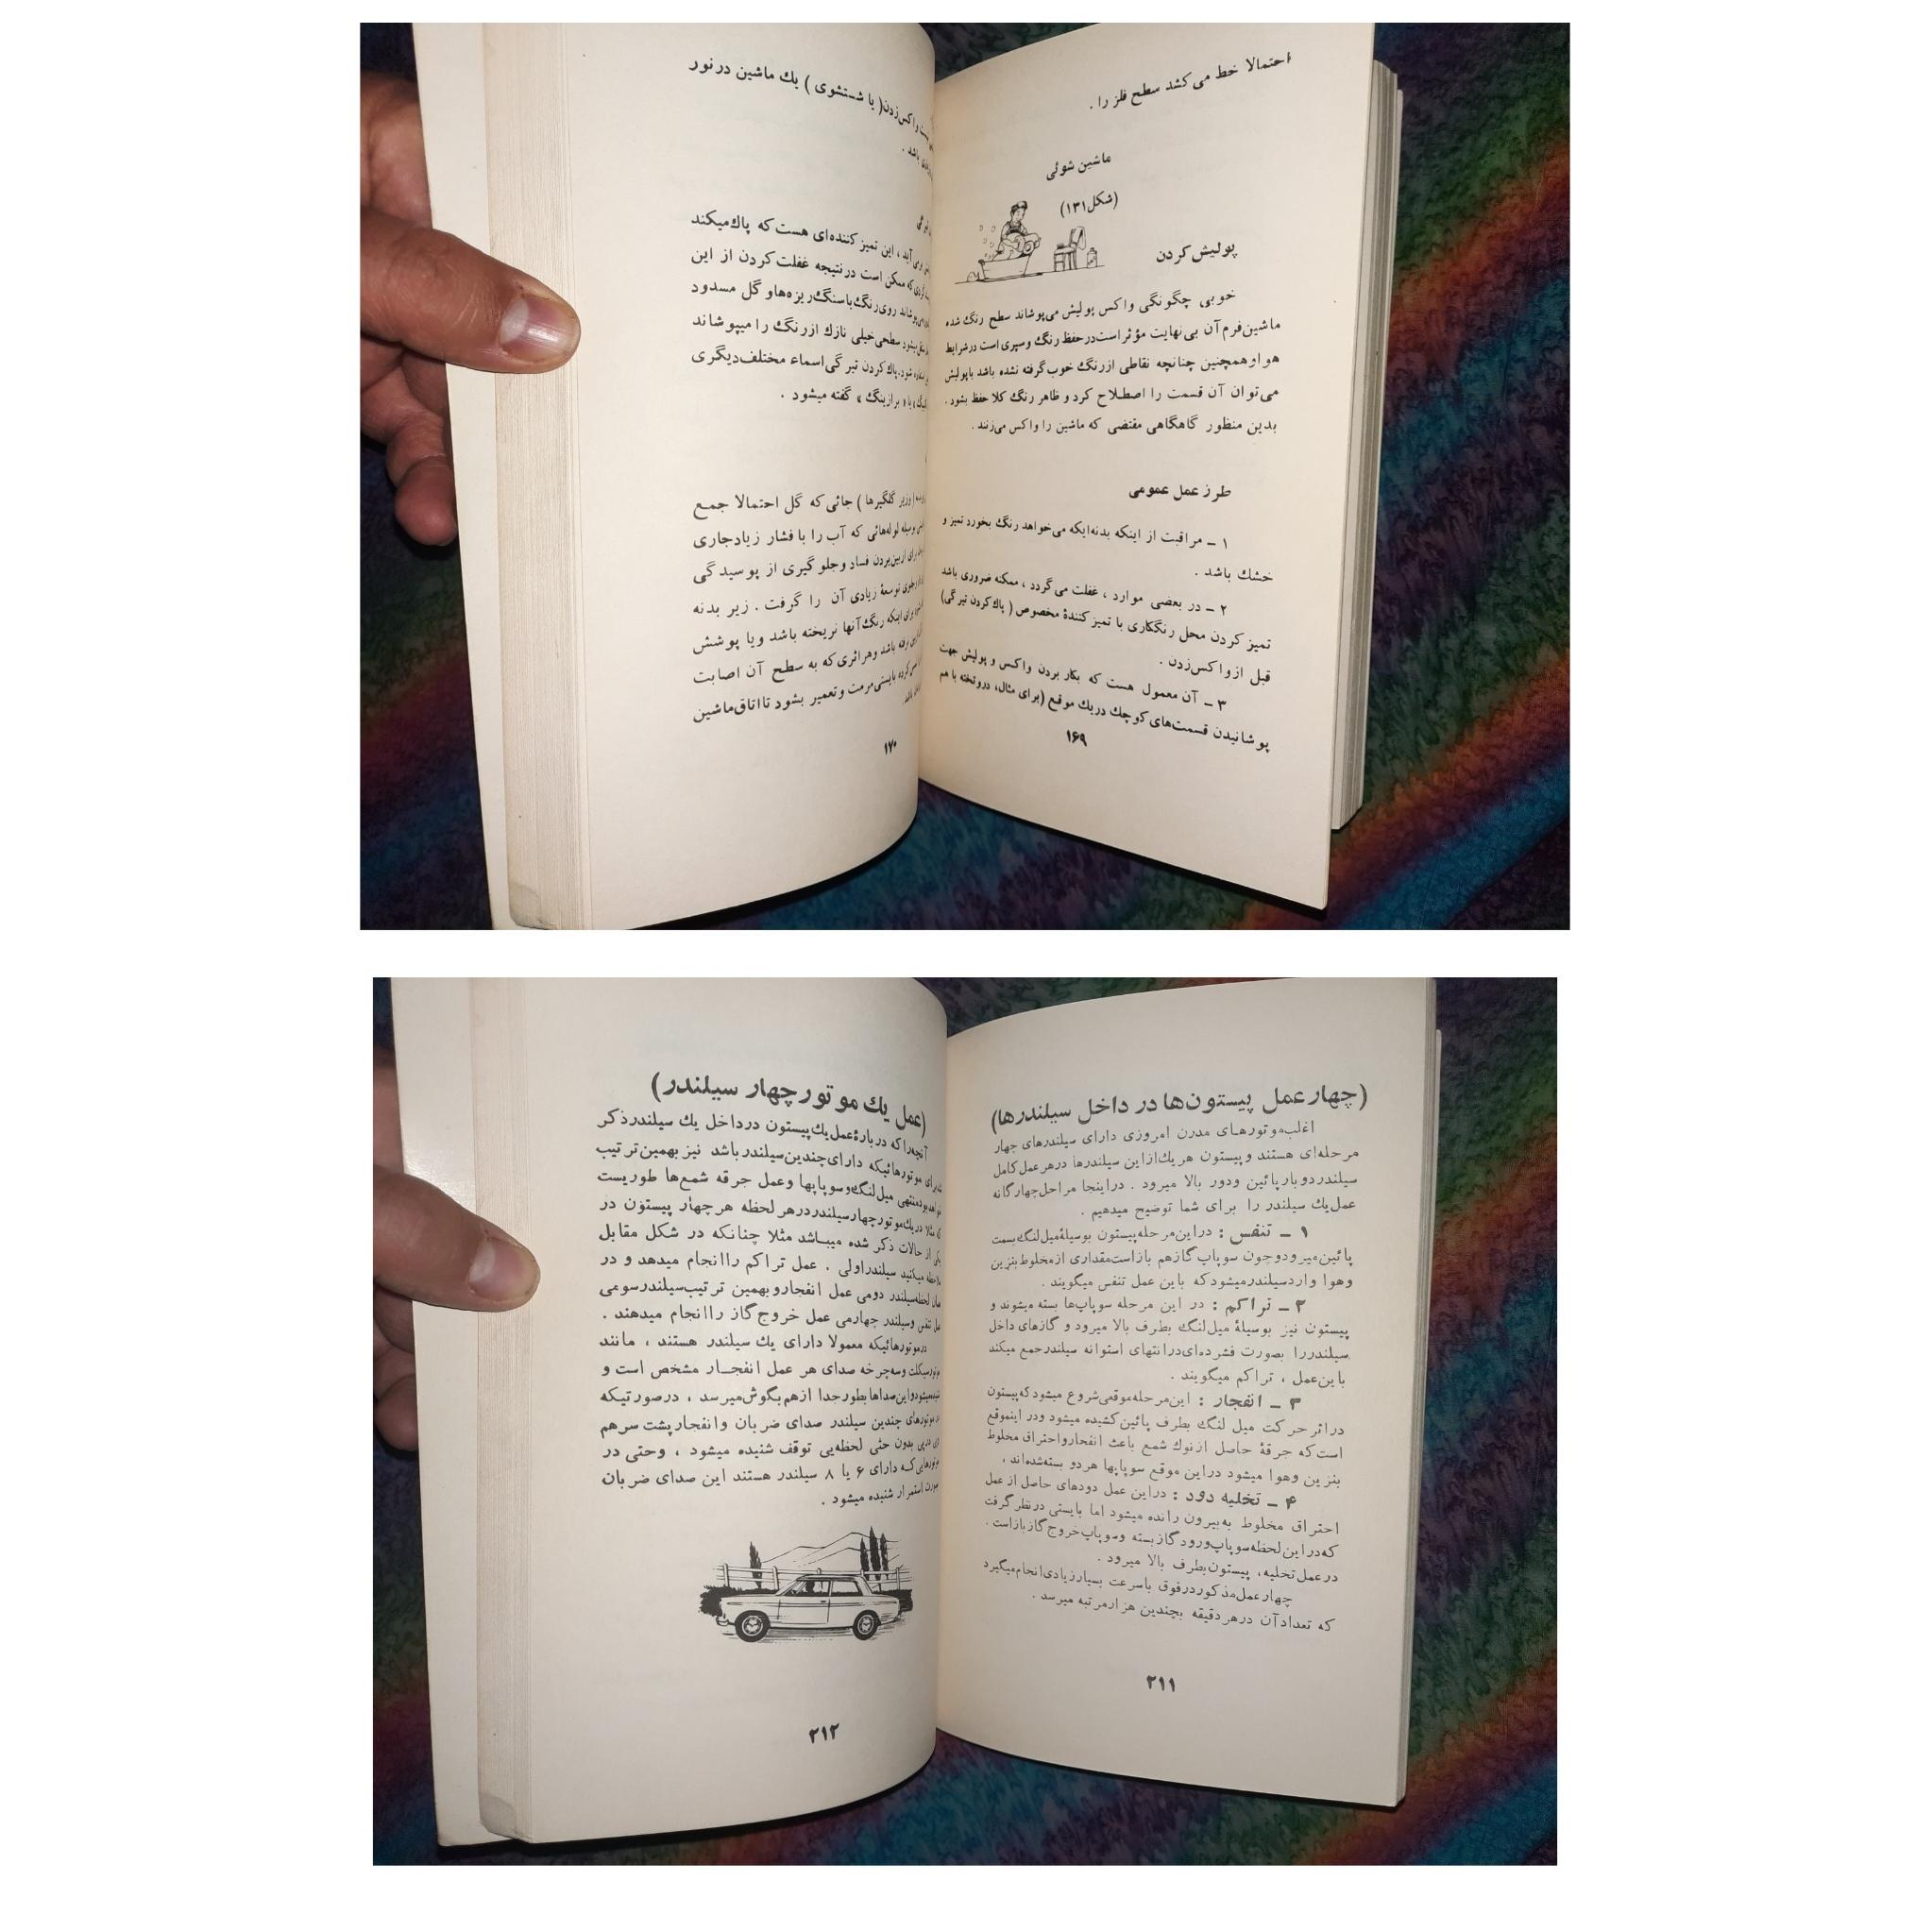 احتمالا خط می‌کشد سطح فلز را .
ماشین شوئی
(شکل ۱۳۱)
پولیش کردن
خوبی چگونگی واکس پولیش می‌پوشاند سطح رنگ شده
ماشین فرم آن بی‌نهایت مؤثر است در حفظ رنگ و سپری است در شرایط
هوا و همچنین چنانچه نقاطی از رنگ خوب گرفته نشده باشد با پولیش
می‌توان آن قسمت را اصطلاح کرد و ظاهر رنگ کلا حفظ بشود .
بدین منظور گاهگاهی مقتضی که ماشین را واکس می‌زنند .
طرز عمل عمومی
۱ ـ مراقبت از اینکه بدنه‌ایکه می‌خواهد رنگ بخورد تمیز و
خشك باشد .
۲ ـ در بعضی موارد ، غفلت می‌گردد ، ممکنه ضروری باشد
تمیز کردن محل رنگکاری با تمیز کنندهٔ مخصوص ( پاك کردن تیرگی)
قبل از واکس زدن .
۳ ـ آن معمول هست که بکار بردن واکس و پولیش جهت
پوشانیدن قسمت‌های کوچك در یك موقع (برای مثال، دروتخته با هم
۱۶۹
واکس زدن( یا شستشوی ) یك ماشین در نور
باشد .
می‌آید ، این تمیز کننده‌ای هست که پاك میکند
که ممکن است در نتیجه غفلت کردن از این
روی رنگ با سنگ ریزه‌ها و گل مسدود
سطحی خیلی نازك از رنگ را میپوشاند
شود. پاك کردن تیرگی اسماء مختلف دیگری
یا « برازینگ » گفته میشود .
( زیر گلگیرها ) جائی که گل احتمالا جمع
بوسیله لوله‌هائی که آب را با فشار زیاد جاری
برای از بین بردن فساد و جلوگیری از پوسیدگی
توسعهٔ زیادی آن را گرفت . زیر بدنه
برای اینکه رنگ آنها نریخته باشد و یا پوشش
رفته باشد و هر اثری که به سطح آن اصابت
کرده بایستی مرمت و تعمیر بشود تا اتاق ماشین
۱۷۰
(چهار عمل پیستون‌ها در داخل سیلندرها)
اغلب موتورهای مدرن امروزی دارای سیلندرهای چهار
مرحله‌ای هستند و پیستون هر یك از این سیلندرها در هر عمل کامل
سیلندر دو بار پائین و دور بالا میرود . در اینجا مراحل چهارگانه
عمل یك سیلندر را برای شما توضیح میدهیم .
۱ ـ تنفس : در این مرحله پیستون بوسیلهٔ میل لنگ بسمت
پائین میرود و چون سوپاپ گاز هم باز است مقداری از مخلوط بنزین
و هوا وارد سیلندر میشود که باین عمل تنفس میگویند .
۲ ـ تراکم : در این مرحله سوپاپ‌ها بسته میشوند و
پیستون نیز بوسیلهٔ میل لنگ بطرف بالا میرود و گازهای داخل
سیلندر را بصورت فشرده‌ای در انتهای استوانه سیلندر جمع میکند
باین عمل ، تراکم میگویند .
۳ ـ انفجار : این مرحله موقعی شروع میشود که پیستون
در اثر حرکت میل لنگ بطرف پائین کشیده میشود و در اینموقع
است که جرقهٔ حاصل از نوك شمع باعث انفجار و احتراق مخلوط
بنزین و هوا میشود در این موقع سوپاپها هر دو بسته شده‌اند ،
۴ ـ تخلیه دود : در این عمل دودهای حاصل از عمل
احتراق مخلوط به بیرون رانده میشود اما بایستی در نظر گرفت
که در این لحظه سوپاپ ورود گاز بسته و سوپاپ خروج گاز باز است .
در عمل تخلیه، پیستون بطرف بالا میرود .
چهار عمل مذکور در فوق با سرعت بسیار زیادی انجام میگیرد
که تعداد آن در هر دقیقه بچندین هزار مرتبه میرسد .
۲۱۱
(عمل یك موتور چهار سیلندر)
آنچه را که دربارهٔ عمل یك پیستون در داخل یك سیلندر ذکر
شد برای موتورهائیکه دارای چندین سیلندر باشد نیز بهمین ترتیب
خواهد بود منتهی میل لنگ و سوپاپها و عمل جرقه شمع‌ها طوریست
که مثلا در یك موتور چهار سیلندر در هر لحظه هر چهار پیستون در
یکی از حالات ذکر شده میباشد مثلا چنانکه در شکل مقابل
ملاحظه میکنید سیلندر اولی . عمل تراکم را انجام میدهد و در
همان لحظه سیلندر دومی عمل انفجار و بهمین ترتیب سیلندر سومی
عمل تنفس و سیلندر چهارمی عمل خروج گاز را انجام میدهند .
در موتورهائیکه معمولا دارای یك سیلندر هستند ، مانند
موتورسیکلت و سه چرخه صدای هر عمل انفجار مشخص است و
شنیده میشود و این صداها بطور جدا از هم بگوش میرسد ، در صورتیکه
در موتورهای چندین سیلندر صدای ضربان و انفجار پشت سر هم
بدون حتی لحظه‌یی توقف شنیده میشود ، و حتی در
موتورهایی که دارای ۶ یا ۸ سیلندر هستند این صدای ضربان
بصورت استمرار شنیده میشود .
۲۱۲